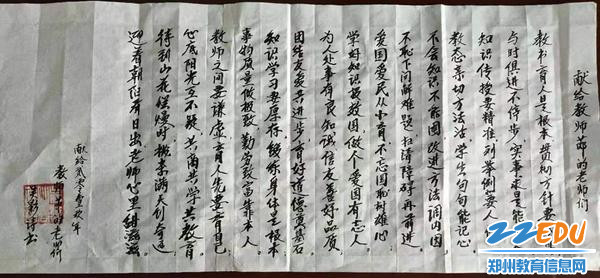 献给教师节的老师们
教书育人是根本 贯彻方针要
与时俱进不停步 实事求是能
知识传授要精准 列举例要人
教态亲切方法活 学生句句能记心
不会知识不能圆 改进方法调内因
不耻下问解难题 扫清障碍再前进
爱国爱民从小育 不忘国耻树雄心
学好知识报效国 做个爱国有志人
为人处事有良知 诚信友善好品质
团结友爱共进步 育好道德奠基石
知识学习要厚存 锻炼身体是根本
事物质量做极致 勤劳致富靠本人
教师之间要谦虚 育人先要育自己
心底阳光互不疑 共商共学共教育
待到山花烂漫时 桃李满天创奇迹
迎着朝阳看日出 老师心里甜滋滋
献给
教师节的老师们
22EDU
郑州教育信息网